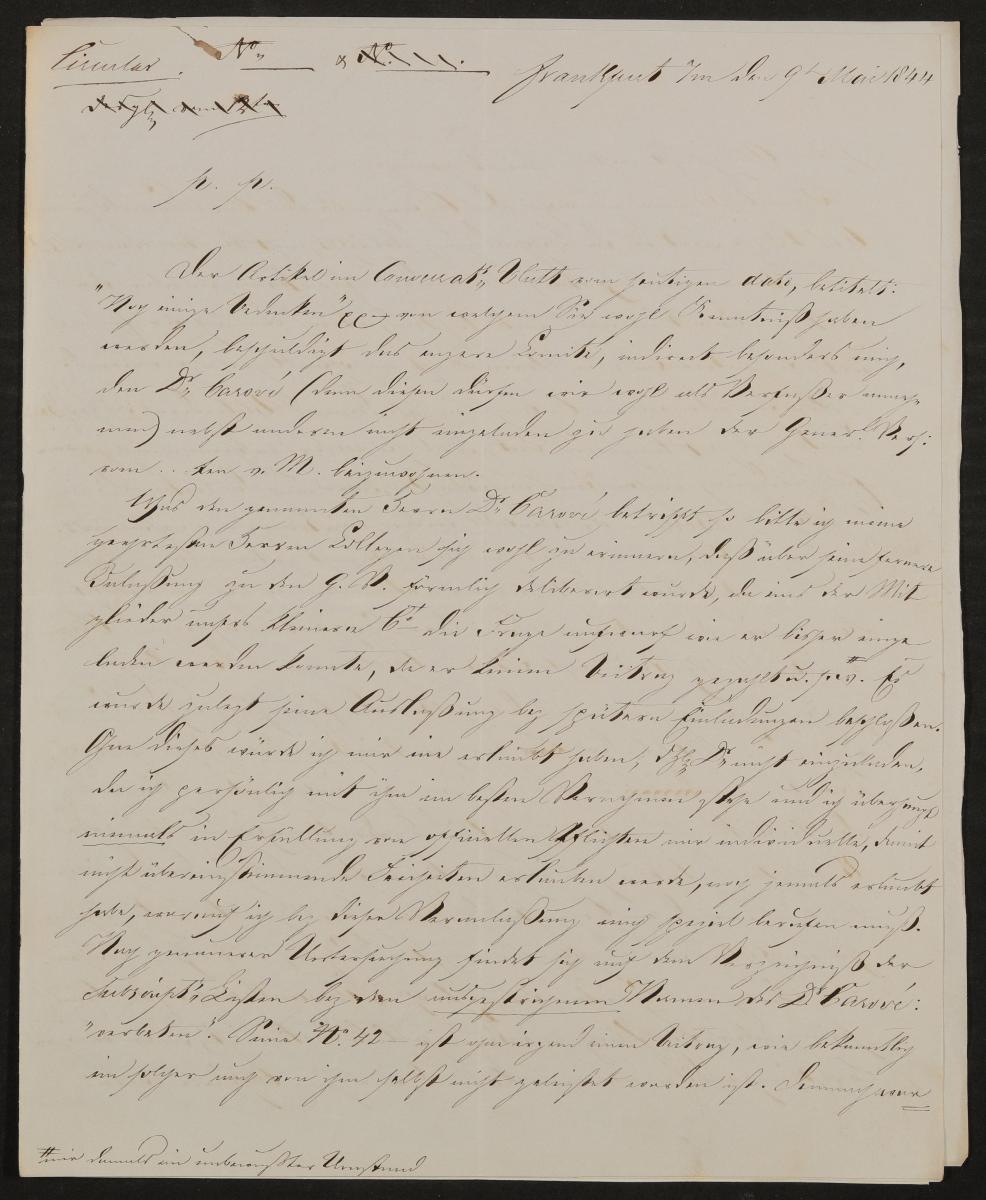 Circular. No. & No. II.
Frankfurt a/m den 9t Mai 1844
desgl. vom
p. p.
Der Artikel im Conversats. Blatt vom heutigen dato, betitelt:
"Noch einige Bedenken" von welchem Sie wohl Kenntniß haben
werden, beschuldigt das engere Comité, indirect besonders mich,
den Dr. Carové (denn diesen dürfen wir wohl als Verfasser anneh-
men) nebst anderen nicht eingeladen zu haben der Gener. Vers:
vom ... ten v. M. beizuwohnen.
Was den genannten Herrn Dr. Carové betrifft, so bitte ich meine
geehrtesten Herren Collegen sich wohl zu erinnern, daß über seine fernere
Zulassung zu den G. V. förmlich deliberirt wurde, da eins der Mit-
glieder unsers kleineren Ct die Frage aufwarf wie er bisher einge-
laden werden konnte, da er keinen Beitrag gezahlt u. s. w. # Es
wurde zuletzt seine Auslaßung bey spätern Einladungen beschloßen.
Ohne dieses würde ich mir nie erlaubt haben, Dr. nicht einzuladen,
da ich persönlich mit ihm im besten Vernehmen stehe und ich überhaupt
niemals in Erfüllung von officiellen Pflichten mir individuelle, damit
nicht übereinstimmende Freiheiten erlauben werde, noch jemals erlaubt
habe, worauf ich bey dieser Veranlaßung mich speziel berufen muß.
Nach genauerer Untersuchung findet sich auf dem Verzeichniß der
Subscript. Listen bey dem ausgestrichenen Namen des Dr. Carové:
"verbeten". Seine No. 42 – ist ohne irgend einen Beitrag, wie bekanntlich
ein solcher auch von ihm selbst nicht geleistet worden ist. Demnach war
# mir damals ein unbewußter Umstand